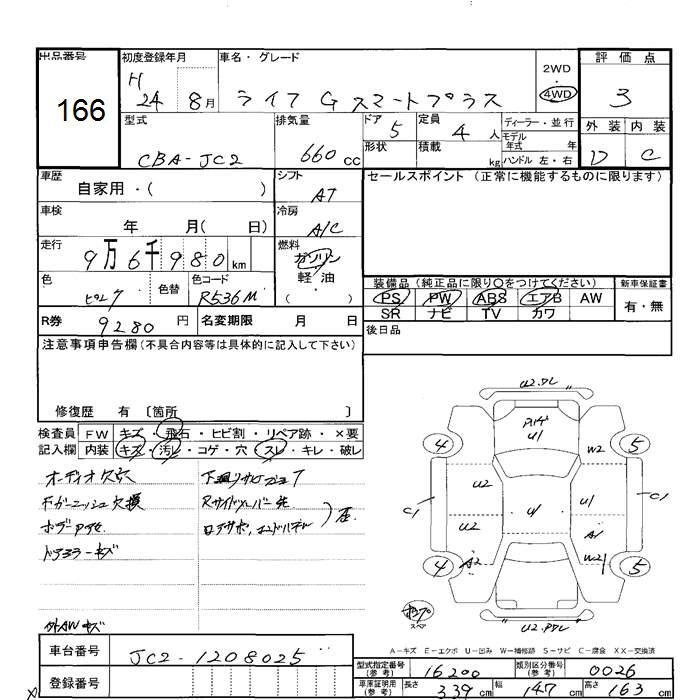 出品番号
166
初度登録年月
H
24 8月
車名・グレード
ライフ G スマートプラス
2WD
・
4WD
評価点
3
外装 内装
D C
型式
CBA-JC2
排気量
660cc
ドア
5
定員
4人
形状
積載
kg
ディーラー・並行
モデル年式 年
ハンドル 左・右
車歴
自家用・( )
シフト
AT
セールスポイント (正常に機能するものに限ります)
車検
年 月( 日)
冷房
A/C
走行
9万6千980km
燃料
ガソリン
軽・油
( )
色
ピンク
色替
色コード
R536M
装備品 (純正品に限り○をつけてください)
PS PW ABS エアB AW
SR ナビ TV カワ
新車保証書
有・無
R券
9280円
名変期限 月 日
後日品
注意事項申告欄(不具合内容等は具体的に記入して下さい)
修復歴 有 〔箇所 〕
検査員記入欄
FW キズ・飛石・ヒビ割・リペア跡・×要
内装 キズ・汚レ・コゲ・穴・スレ・キレ・破レ
オーディオ欠品
ドアミラーキズ
外AWキズ
U2.PL
U1
4 5
U2 W2
C1 U1 C1
U2 A1
A2 W2
4 5
スペア
U2.PPL
A-キズ E-エクボ U-凹み W-補修跡 S-サビ C-腐食 XX-交換済
車台番号
JC2-1208025
登録番号
型式指定番号(参考)
16200
類別区分番号(参考)
0026
車庫証明用(参考)
長さ 339cm 幅 147cm 高さ 163cm